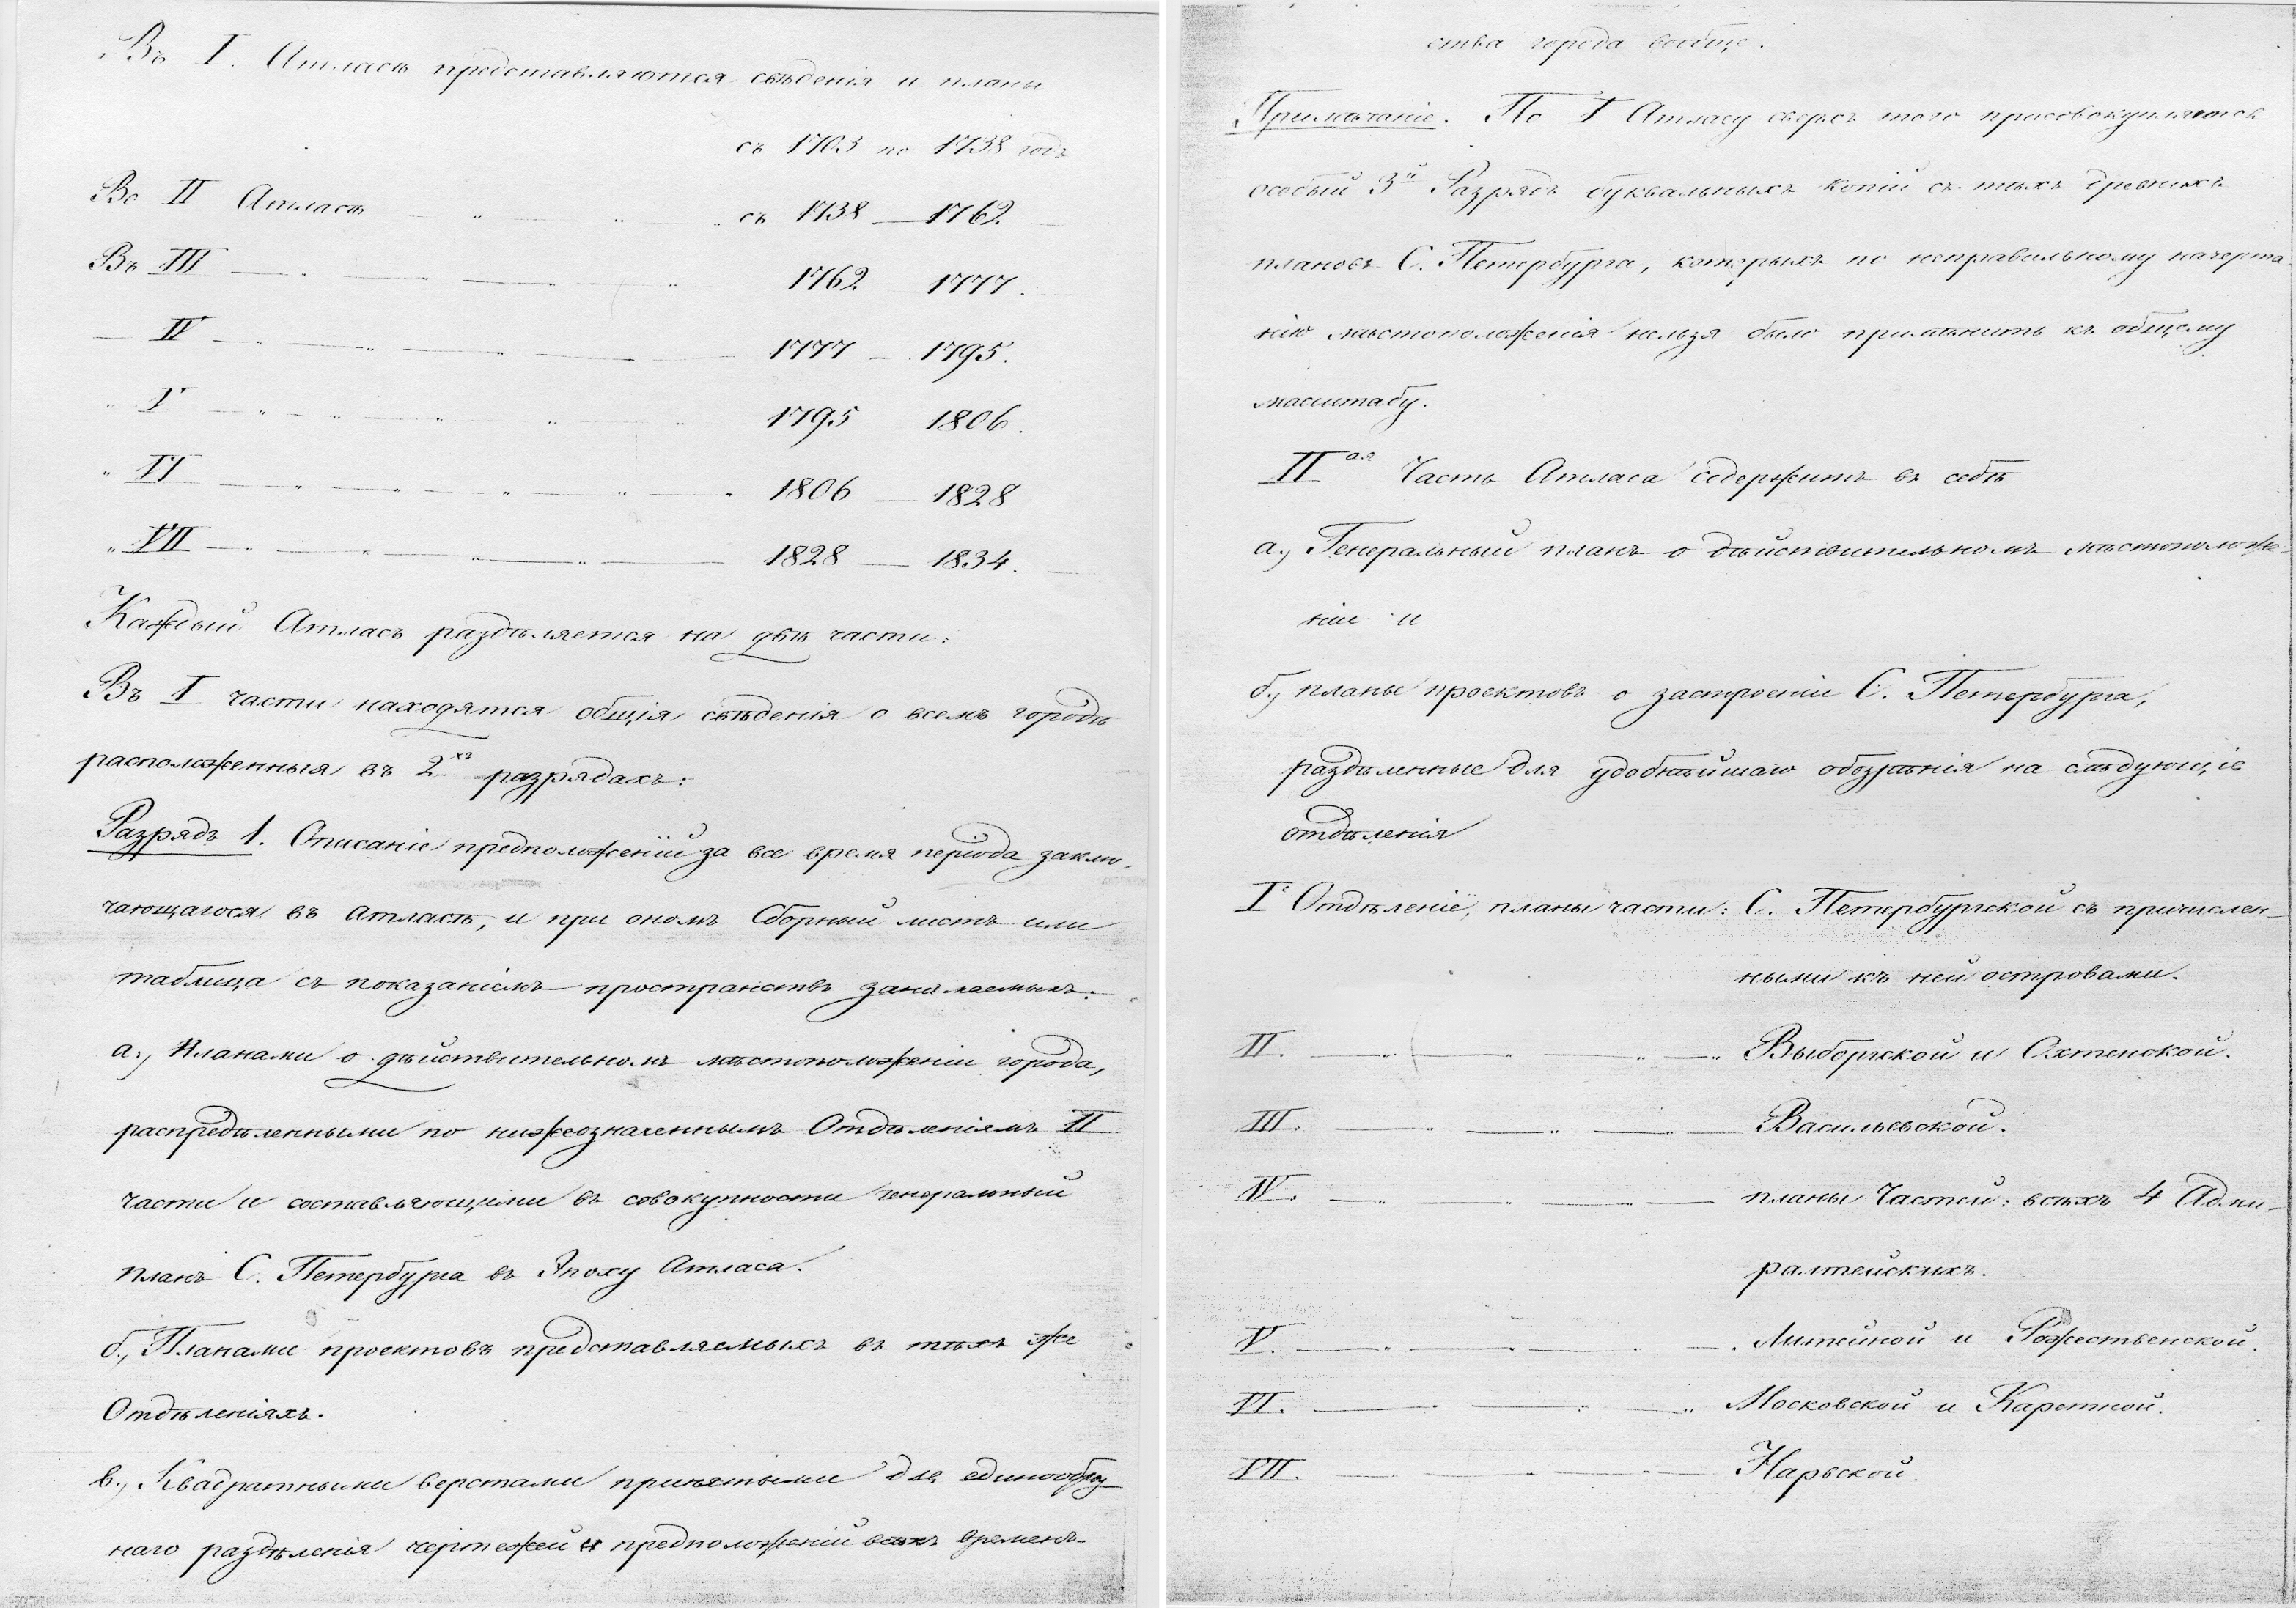 Въ I. Атласѣ представляются свѣденія и планы
съ 1703 по 1738 годъ
Во II Атласѣ — „ — „ — „ съ 1738 — 1762
Въ III — „ — „ — „ 1762 1777.
— IV — „ — „ — „ — 1777 — 1795.
„ V — „ — „ — „ — „ — „ 1795 1806.
„ VI — „ — „ — „ — „ — „ 1806 — 1828
„ VII — „ — „ — „ — 1828 — 1834.
Каждый Атласъ раздѣляется на двѣ части:
Въ I части находятся общія свѣденія о всемъ городѣ
расположенныя въ 2хъ разрядахъ:
Разрядъ 1. Описаніе предположеній за все время періода заклю-
чающагося въ атласѣ, и при ономъ Сборный листъ или
таблица съ показаніемъ пространствъ занимаемыхъ:
а., Планами о дѣйствительномъ мѣстоположеніи города,
распредѣленными по нижеозначеннымъ Отдѣленіямъ II
части и составляющими въ совокупности генеральный
планъ С. Петербурга въ Эпоху Атласа.
б., Планами проектовъ представляемыхъ въ тѣхъ же
Отдѣленіяхъ.
в., Квадратными верстами принятыми для единообраз-
наго раздѣленія чертежей и предположеній всѣхъ временъ.
ства города вообще.
Примѣчаніе. По I Атласу сверхъ того присовокупляется
особый 3й Разрядъ буквальныхъ копій съ тѣхъ древнихъ
плановъ С. Петербурга, которыхъ по неправильному начерта-
нію мѣстоположенія нельзя было примѣнить къ общему
масштабу.
IIая Часть Атласа содержитъ въ себѣ
а., Генеральный планъ о дѣйствительномъ мѣстоположе-
ніи и
б., планы проектовъ о застроеніи С. Петербурга,
раздѣленные для удобнѣйшаго обозрѣнія на слѣдующіе
отдѣленія
Iе Отдѣленіе, планы части: С. Петербургской съ причислен-
ными къ ней островами.
II. — „ — „ — „ — „ Выборгской и Охтенской.
III. — „ — „ — „ — Васильевской.
IV. — „ — „ — „ — планы Частей: всѣхъ 4 Адми-
ралтейскихъ.
V. — „ — „ — „ — Литейной и Рожественской.
VI. — „ — „ — „ Московской и Каретной.
VII. — „ — „ — „ — Нарвской.